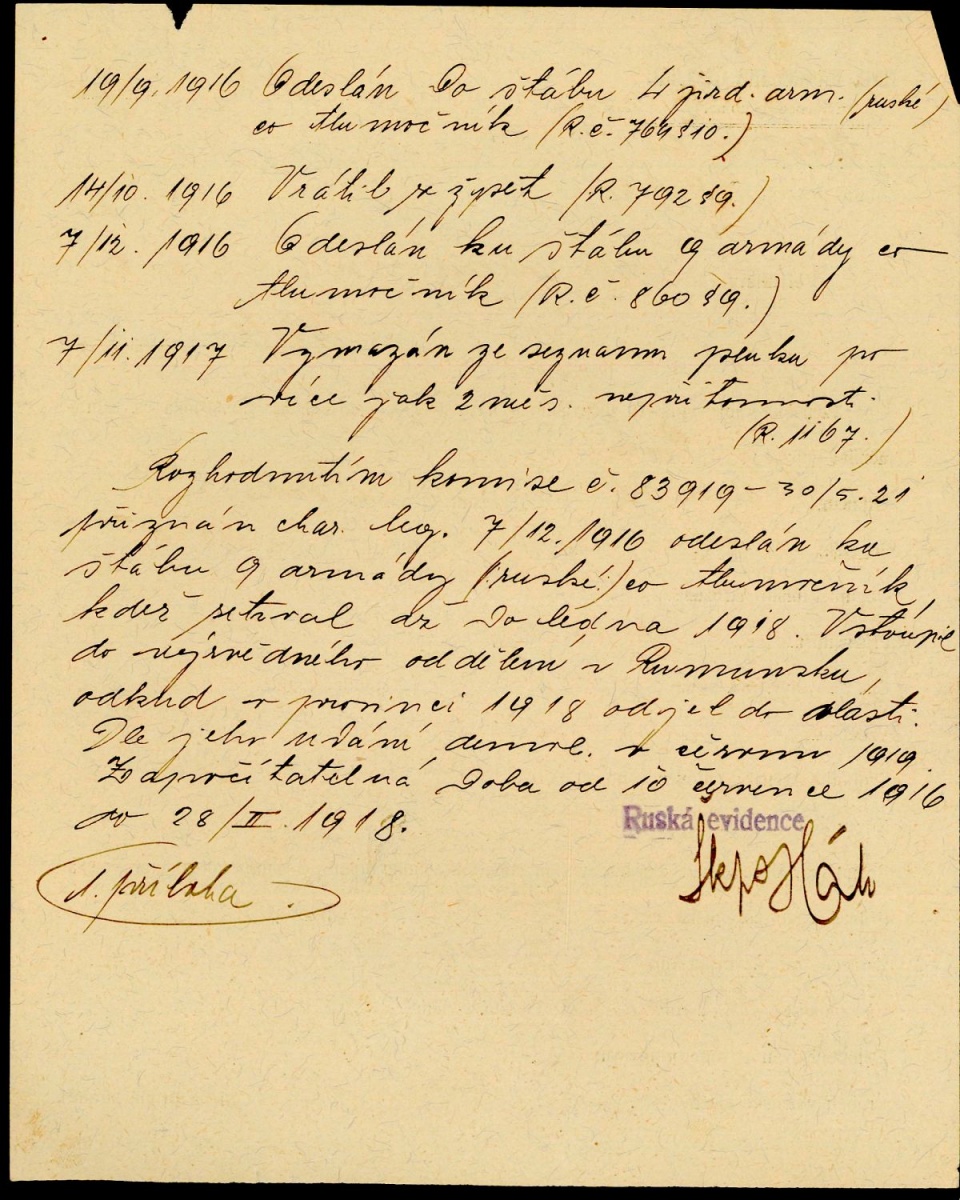 19/9. 1916 Odeslán do štábu 4 jízd. arm. (ruské)
co tlumočník (R.č. 764 §10.)
14/10. 1916 Vrátil se zpět (R. 792 §9.)
7/12. 1916 Odeslán ku štábu 9 armády co
tlumočník (R.č. 860 §9.)
7/11. 1917 Vymazán ze seznamu pluku po
více jak 2 měs. nepřítomnosti.
(R. 1167.)
Rozhodnutím komise č. 83919 – 30/5. 21
přiznán char. leg. 7/12. 1916 odeslán ku
štábu 9 armády (:ruské:) co tlumočník,
kdež setrval až do ledna 1918. Vstoupil
do výzvědného oddělení v Rumunsku,
odkud v prosinci 1918 odjel do vlasti.
Dle jeho udání demob. v červnu 1919.
Započítatelná doba od 10 července 1916
do 28/II. 1918.
Ruská evidence
1. příloha.